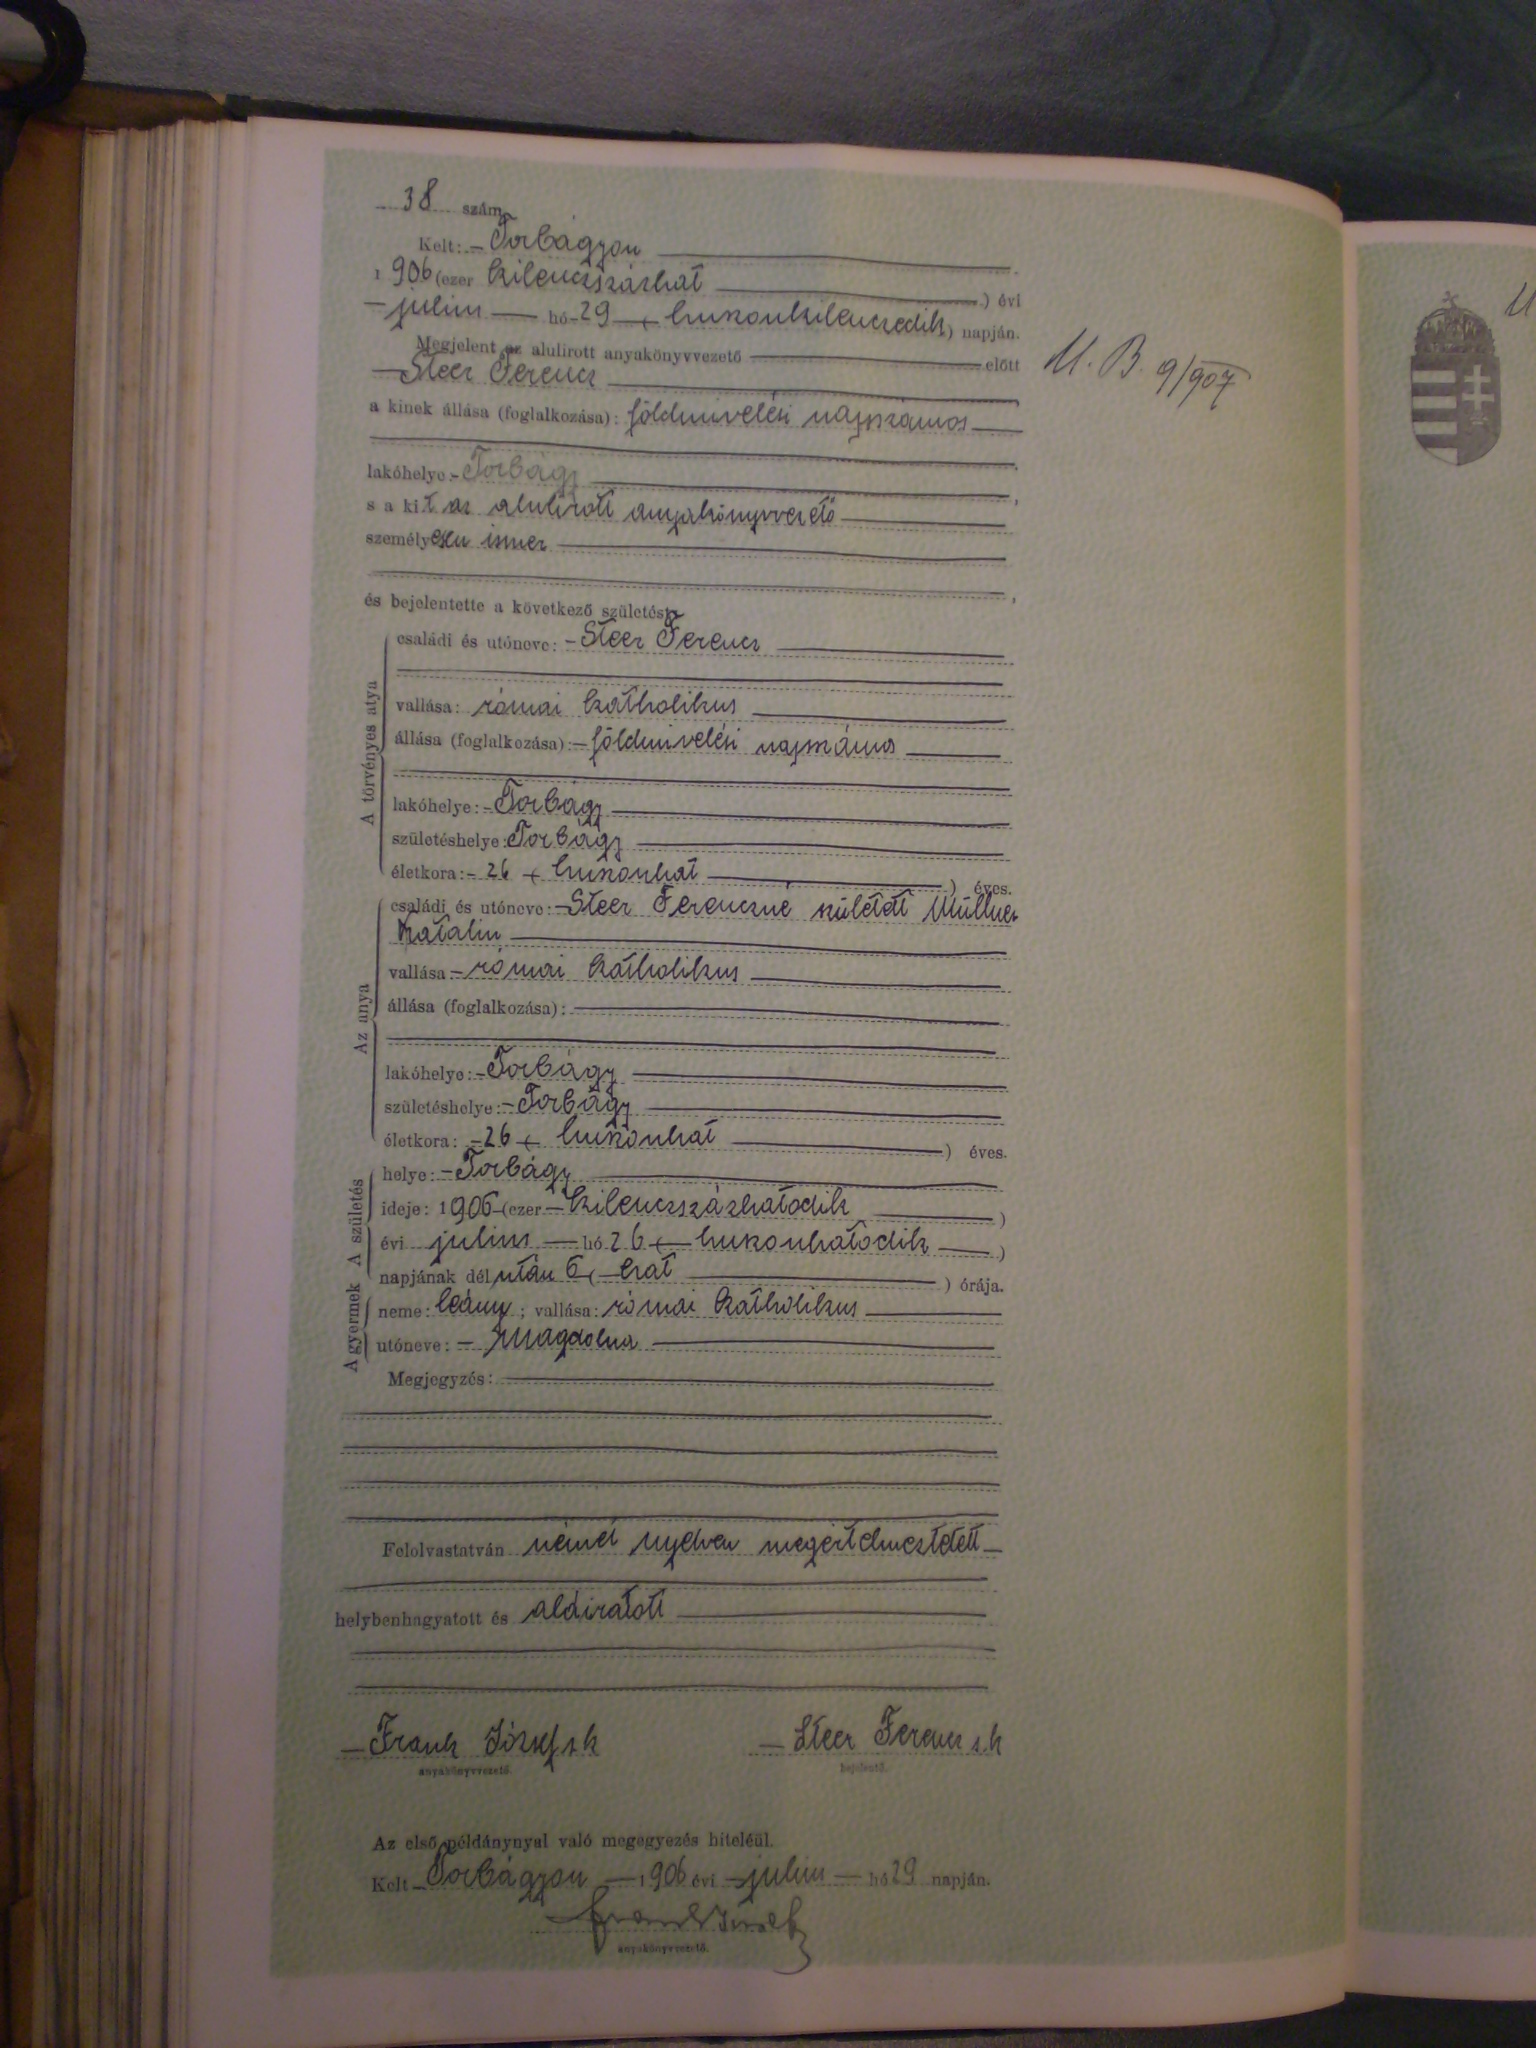 38 szám
Kelt: Torbágyon
1906 (ezer kilenczszázhat ) évi
julius hó 29 ( huszonkilenczedik ) napján.
Megjelent az alulirott anyakönyvvezető előtt
Steer Ferencz ,
a kinek állása (foglalkozása): földmivelési napszámos
lakóhelye Torbágy ,
s a kit az alulirott anyakönyvvezető
személyesen ismer ,
és bejelentette a következő születést:
A törvényes atya
családi és utóneve: Steer Ferencz
vallása: római katholikus
állása (foglalkozása): földmivelési napszámos
lakóhelye: Torbágy
születéshelye: Torbágy
életkora: 26 ( huszonhat ) éves.
Az anya
családi és utóneve: Steer Ferenczné született Müllner
Katalin
vallása római katholikus
állása (foglalkozása):
lakóhelye: Torbágy
születéshelye: Torbágy
életkora: 26 ( huszonhat ) éves.
A születés
helye: Torbágy
ideje: 1906 (ezer kilenczszázhatodik )
évi julius hó 26 ( huszonhatodik )
napjának dél után 6 ( hat ) órája.
A gyermek
neme: leány ; vallása: római katholikus
utóneve: Magdolna
Megjegyzés:
Felolvastatván német nyelven megértelmeztetett
helybenhagyatott és aláiratott
Frank József s.k Steer Ferencz s.k
anyakönyvvezető. bejelentő.
Az első példánynyal való megegyezés hiteléül.
Kelt Torbágyon 1906 évi julius hó 29 napján.
Frank József
anyakönyvvezető.
U. B. 9/907